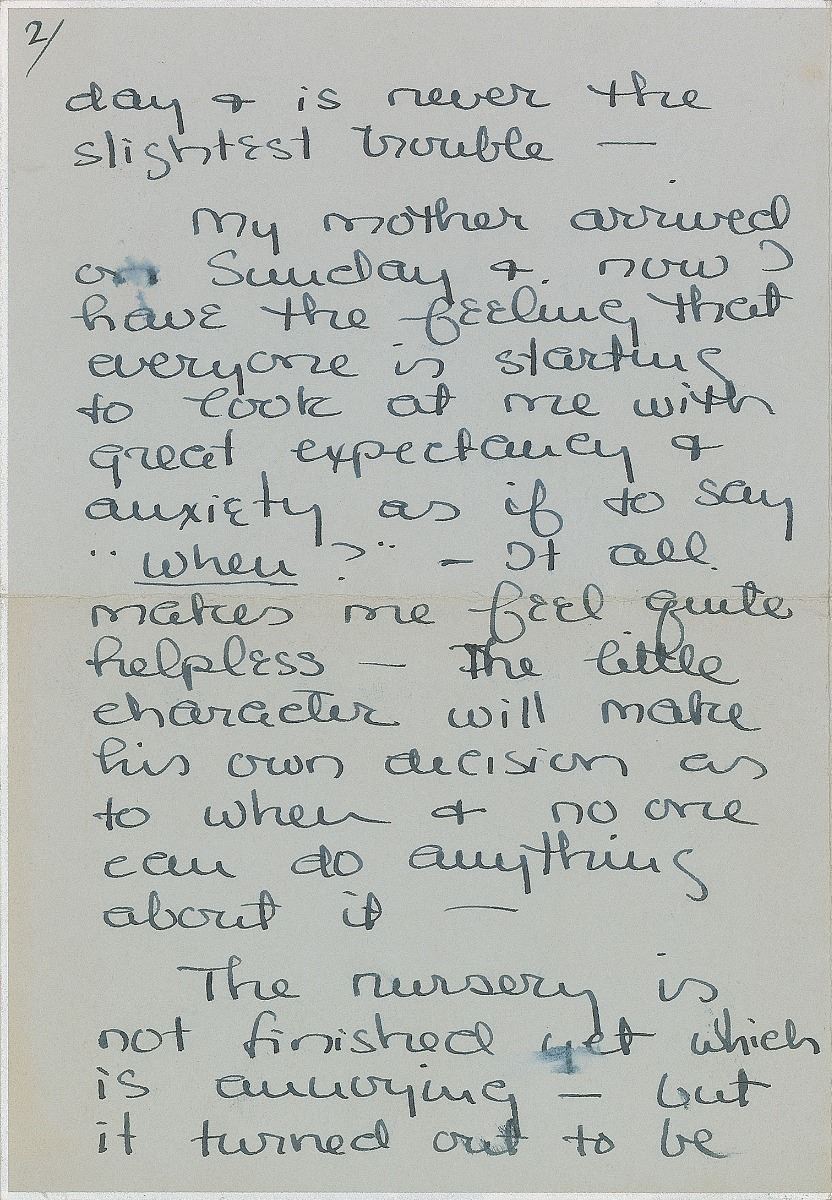 2/
day & is never the
slightest trouble —
My mother arrived
on Sunday & now I
have the feeling that
everyone is starting
to look at me with
great expectancy &
anxiety as if to say
"when?" - It all
makes me feel quite
helpless — The little
character will make
his own decision as
to when & no one
can do anything
about it —
The nursery is
not finished yet which
is annoying — but
it turned out to be